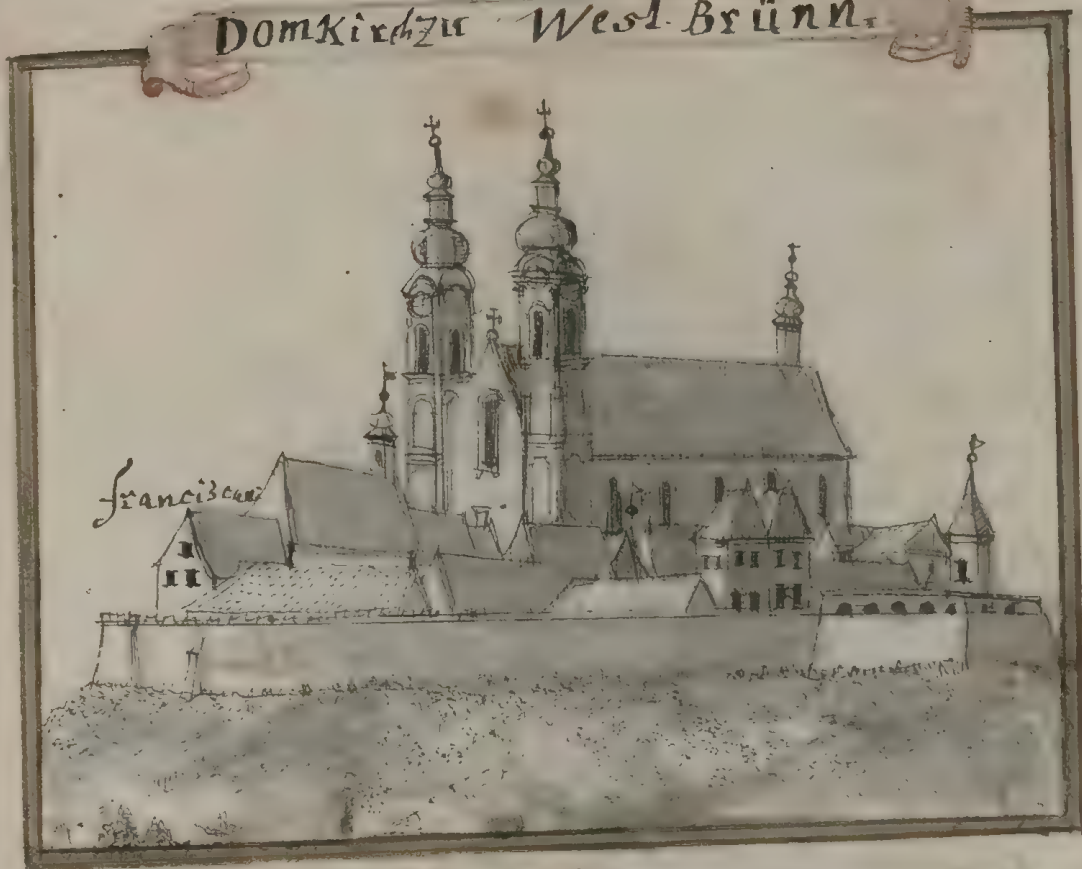 DomKirch zu West. Brünn.
franciscan